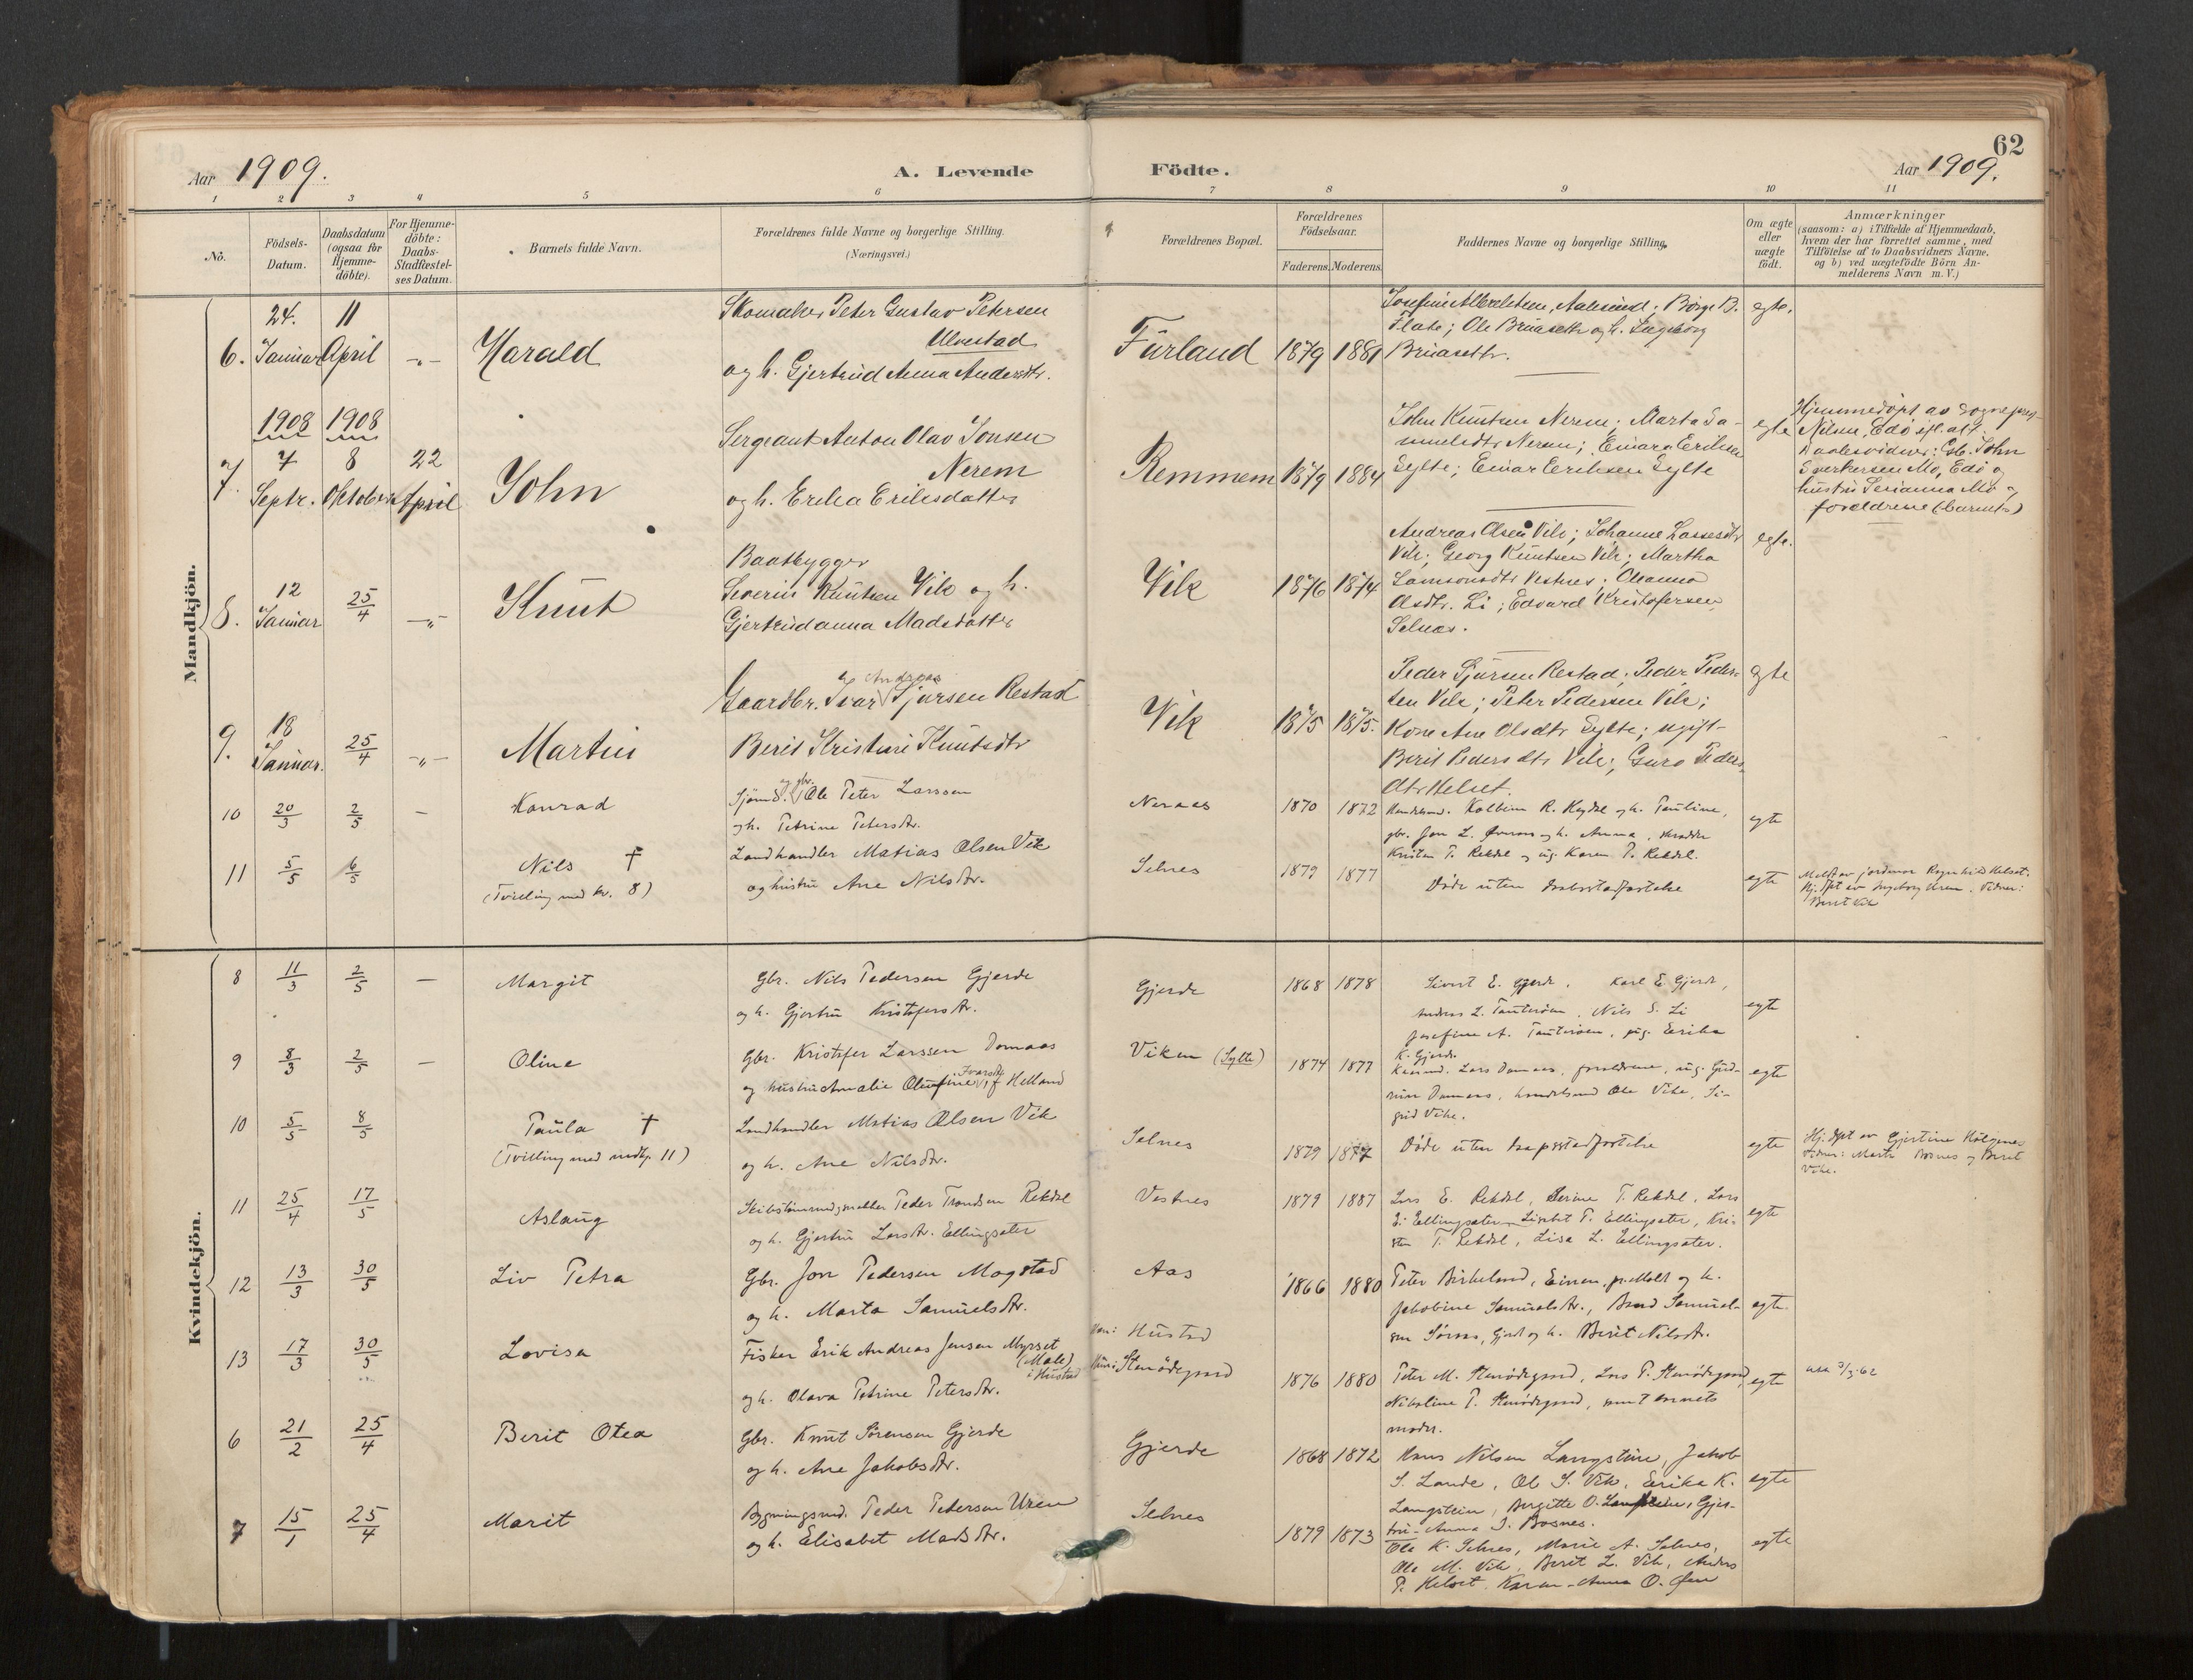 62
Aar 1909.
A. Levende Födte.
Aar 1909.
1 2 3 4 5 6 7 8 9 10 11
No.
Födsels-
Datum.
Daabsdatum
(ogsaa for
Hjemme-
döbte).
For Hjemme-
döbte:
Daabs-
Stadfæstel-
ses Datum.
Barnets fulde Navn.
Forældrenes fulde Navne og borgerlige Stilling.
(Næringsvei.)
Forældrenes Bopæl.
Forældrenes
Födselsaar.
Faderens. Moderens.
Faddernes Navne og borgerlige Stilling.
Om ægte
eller
uægte
födt.
Anmærkninger
(saasom: a) i Tilfælde af Hjemmedaab,
hvem der har forrettet samme, med
Tilföielse af to Daabsvidners Navne,
og b) ved uægtefödte Börn An-
melderens Navn m. V.)
Mandkjön.
6.
24.
Januar
11
April
Harald
Skomaker Peter Gustav Petersen
Ulvestad
og h. Gjertrud Anna Andersdtr.
Furland
1879 1881
Aalesund; Börge B.
Flate; Ole Bruaseth og h. Ingeborg
Bruaseth.
egte.
7.
1908
7
Septr.
1908
8
Oktober
22
April
John
Sergeant Anton Olav Jonsen
Nerem
og h. Erika Eriksdatter
Remmem
1879 1884
John Knutsen Nerem; Marta Sa-
muelsdtr Nerem; Einara Eriksen
Sylte; Einar Eriksen Sylte
egte
Hjemmedöpt av sognepres-
Nilsen, Edö ifl. att.
Daabsvidner: Gb. John
Sverkersen Mo, Edö og
hustru Serianna Mo og
foreldrene (barnets)
8.
12
Januar
25/4
Knut
Baatbygger
Severin Knutsen Vik og h.
Gjertrudanna Madsdatter
Vik
1876 1874
Andreas Olsen Vik; Johanne Lassesdtr
Vik; Georg Knutsen Vik; Martha
Samsonsdtr Vestnes; Oleanna
Olsdtr. Li; Edvard Kristofersen
Selnes.
egte.
9.
18
Januar.
25/4
Martin
Andreas
Gaardbr. Ivar Sjursen Restad
Berit Kristine Knutsdtr
Vik
1875 1875.
Peder Sjursen Restad; Peder Peder-
sen Vik; Peter Pedersen Vik;
Kone Ane Olsdtr Sylte; ugift
Berit Pedersdtr Vik; Guro Peders-
dtr Helset.
egte
10
20/3
2/5
Konrad
og gbr.
Sjömd. Ole Peter Larssen
og h. Petrine Petersdtr.
Neraas
1870 1872
Handelsmd. Kolbein R. Rekdal og h. Pauline,
gbr. Jon L. Övernes og h. Anna, skrædder
Kristen T. Rekdal og ug. Karen P. Rekdal.
egte
11
5/5
6/5
Nils †
(Tvilling med kv. 8)
Landhandler Matias Olsen Vik
og hustru Ane Nilsdtr.
Selnes
1879 1877
Döde uten daabsstadfæstelse
egte
Meldt av jordmor Ragnhild Helset.
Hj. döpt av Ingeborg Uren. Vidner:
Berit Vik
Kvindekjön.
8
11/3
2/5
Margit
Gbr. Nils Pedersen Gjerde
og h. Gjertru Kristofersdtr.
Gjerde
1868 1878
Sivert E. Gjerde, Karl E. Gjerde,
Andreas L. Tauteröen, Nils S. Li
Josefine A. Tauteröen, pig. Erika
K. Gjerde.
egte
9
8/3
2/5
Oline
Gbr. Kristofer Larssen Domaas
Ivarsdtr
og hustru Amalie Olufine f Helland
Viken (Sylte)
1874 1877
Lars Domaas, foreldrene, ug. Gud-
run Domaas, handelsmd Ole Vike, Si-
grid Vike.
egte
10
5/5
8/5
Paula †
(Tvilling med mdkj. 11)
Landhandler Matias Olsen Vik
og h. Ane Nilsdtr.
Selnes
1879 1877
Döde uten daapsstadfæstelse
egte
Hj. döpt av Gjertine Helgenes
Vidner: Marte Bosnes og Berit
Vike.
11
25/4
17/5
Aslaug
Skibstömmermands Peder Trondsen Rekdal
og h. Gjertru Larsdtr. Ellingsæter
Vestnes
1879 1887
Lars E. Rekdal, Serine T. Rekdal, Lars
E. Ellingsæter, Lisebet P. Ellingsæter, Kri-
sten T. Rekdal, Lisa L. Ellingsæter.
egte
12
13/3
30/5
Liv Petra
Gbr. Jon Pedersen Mogstad
og h. Marta Samuelsdtr.
Aas
1866 1880
Peter Birkeland, Eirem, pr. Molde og h.
Jakobine Samuelsdtr., Bernt Samuel-
sen Sörnes, Gjerde og h. Berit Nilsdtr.
egte
13
17/3
30/5
Lovisa
Fisker Erik Andreas Jensen Myrset
(Male)
i Hustad
og h. Olava Petrine Petersdtr.
Han: Hustad
Hun: Stenödegaard
1876 1880
Peter M. Stenödegaard, Lars P. Stenödegaard,
Nikoline P. Stenödegaard, samt barnets
moder.
egte
att 3/3-62
6
21/2
25/4
Berit Otea
Gbr. Knut Sörensen Gjerde
og h. Ane Jakobsdtr.
Gjerde
1868 1872
Hans Nilsen Langstein, Jakob
S. Lande, Ole S. Vik, Erika K.
Langstein, Birgitte O. Langstein, Gjer-
tru-Anna J. Bosnes.
egte
7
15/1
25/4
Marit
Bygningsmd. Peder Petersen Uren
og h. Elisabet Madsdtr.
Selnes
1879 1873
Ole K. Selnes, Marie A. Selnes,
Ole M. Vik, Berit L. Vik, Anders
P. Helset, Karen-Anna O. Öen
egte